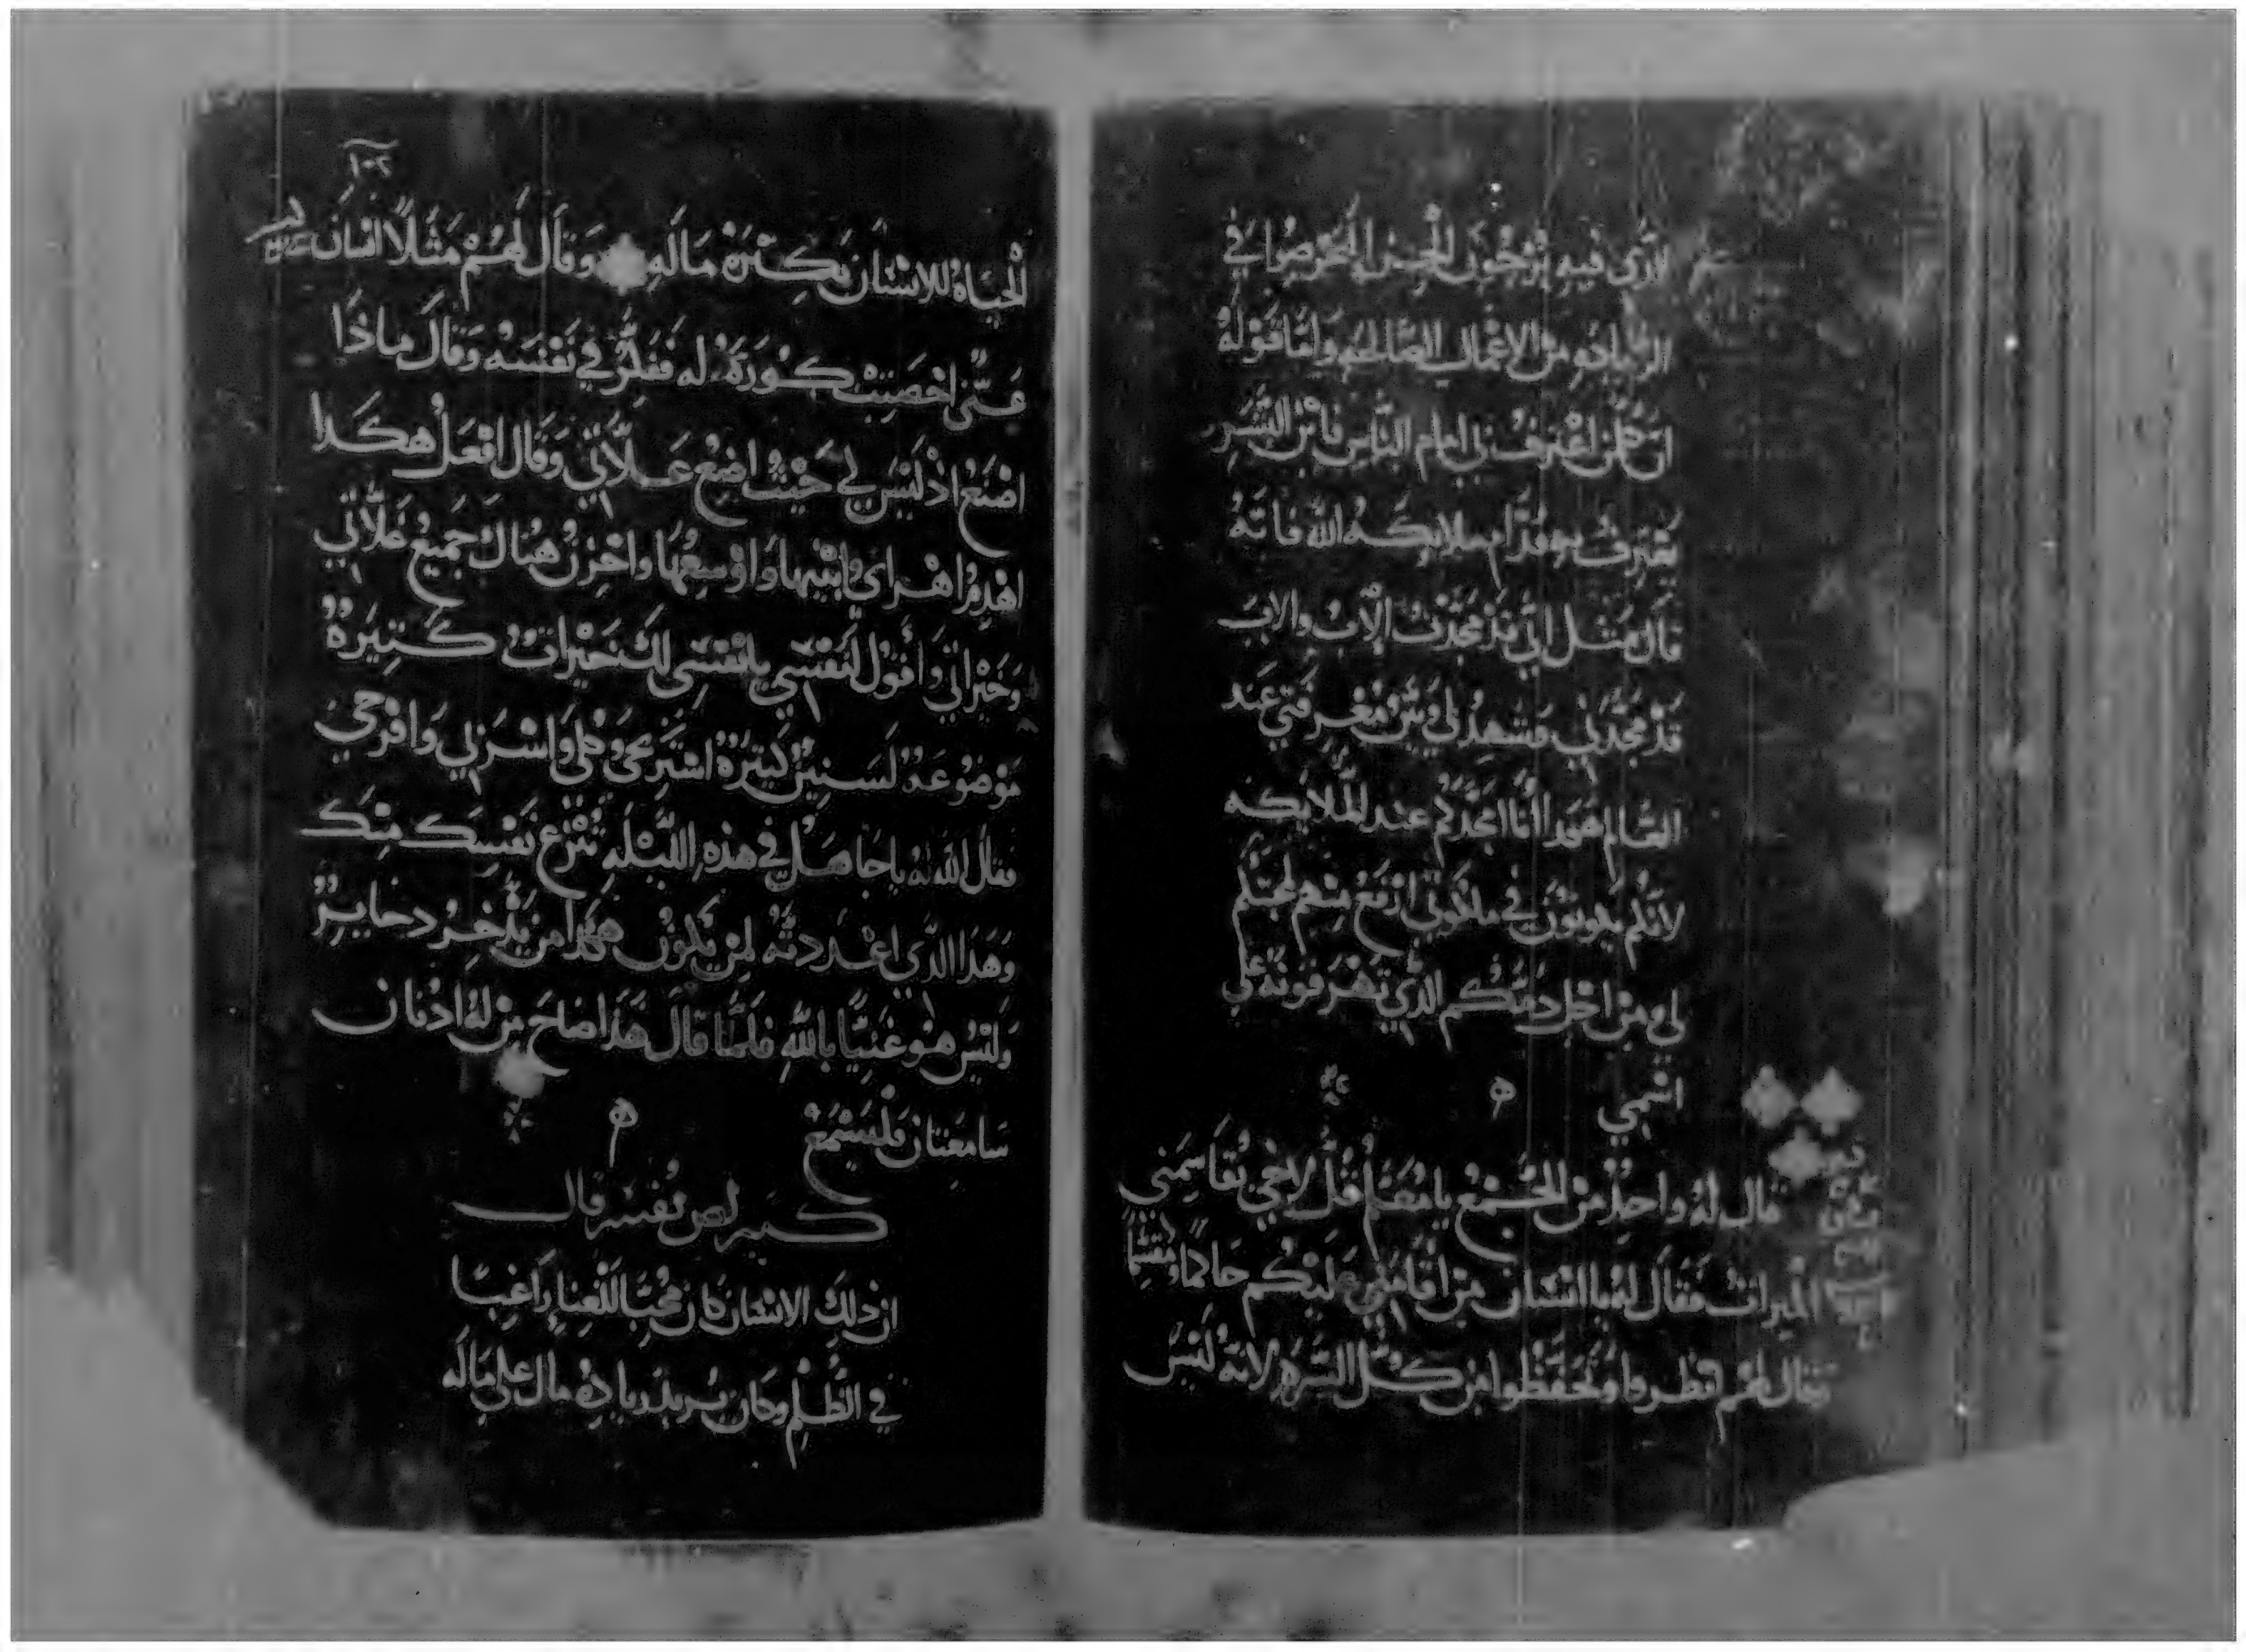 لاري فيه يرجون الجـ
الزياده من الاعمال الصالحه وامّا قوله
ان كلمن اعترف بي امام الناس فابن البشر
يعترف به قدّام ملايكه الله فانّه
قال مثل اني قد مجدت الاب والاب
قد مجّدني فشهد لي معرفتي عند
العالم هوذا انا امجّدكم عند الملايكه
لانكم في ملكوتي
لي من اجل دمكم الذي تهرقونه علي
اسمي
قال له واحدٌ من الجَمْع يا مُعَلّم قُل لاخي يُقاسِمني
الميراث فقال له يا انسان من اقامني عليكم حاكمًا ومُقسّمًا
وقال لهم انظروا وتحفّظوا من كُلّ الشره لانّه لَيْسَ
١٠٢
الحياه للانسَان بكثرة مَاله وَقَال لهُمْ مَثَلاً انسَان
غني اخصَبت كُورَة له ففكّر في نفسه وَقَال ماذَا
اصْنَعُ اذ لَيْسَ لي حَيْث اضَع غَلاّتي وَقال افعل هكَذا
اهْدِم اهْراي وابْنيها وَاوسِعُها واخزن هُناك جَميع غَلاّتي
وَخَيْراتي وَاقول لنَفْسي يا نَفْسِي لك خَيْراتٌ كَثيرةٌ
مَوْضُوعَةٌ لسنينٌ كثيرَةٌ استَريحي وكلي وَاشرَبي وَافْرَحي
فقال الله لهُ يا جَاهل في هذهِ اللّيْله تُنْزَع نَفسك مِنك
وَهَذا الذي اعْددته لمن يَكُون هكَذا من يَدّخِرُ دخاير
وَلَيْسَ هو غَنيًّا بالله فلَمّا قَالَ هَذَا صَاحَ مَن لهُ اذنان
سَامِعتان فَليَسْمَعْ
كيرلص يُفَسّر قال
ان ذلك الانسَان كان مُحِبًّا للغِنا رَاغِبًا
في الظُلم وكان يُريد زيادة مال علي مَالَه